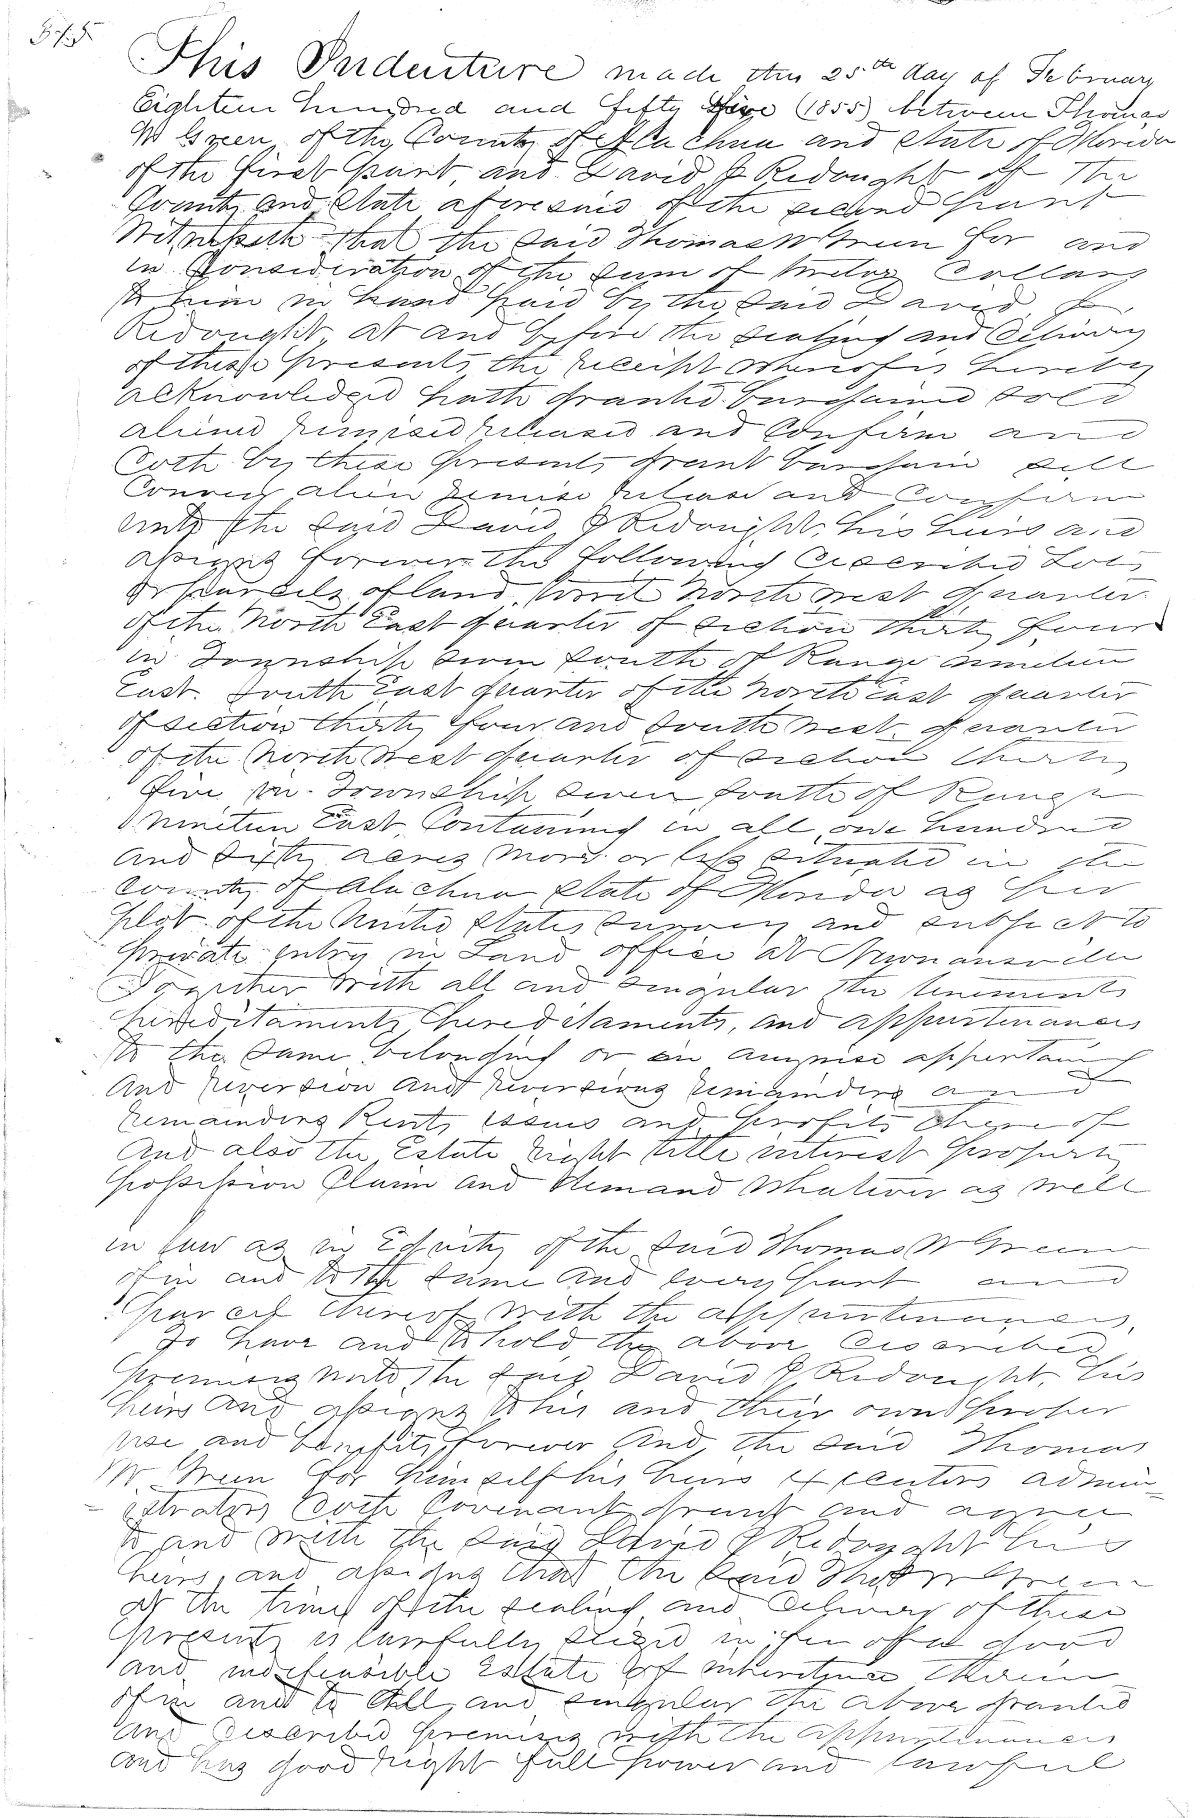 575
This Indenture made this 25th day of February
Eighteen hundred and fifty five (1855) between Thomas
W Green of the County of Alachua and State of Florida
of the first part, and David J Redought of the
County and State aforesaid of the second part
Witnesseth that the said Thomas W Green for and
in Consideration of the sum of twelve Dollars
to him in hand paid by the said David J
Redought at and before the sealing and delivery
of these presents the receipt whereof is hereby
acknowledged hath granted bargained sold
aliened remised released and Confirm and
doth by these presents grant bargain sell
Convey alien remise release and Confirm
unto the said David J Redought, his heirs and
assigns forever the following described Lots
or parcels of land, towit North west quarter
of the North East quarter of section thirty four
in Township seven South of Range nineteen
East. South East quarter of the North East quarter
of section thirty four and South west quarter
of the North west quarter of section thirty
five in Township seven South of Range
nineteen East, Containing in all one hundred
and sixty acres more or less situated in the
County of Alachua State of Florida as per
plot of the United States survey and subject to
private entry in Land office at Newnansville
Together with all and singular the tenements
hereditaments hereditaments, and appurtenances
to the same belonging or in anywise appertaining
And reversion and reversions remainders and
remainders Rents issues and profits thereof
And also the Estate right title interest property
possession Claim and demand whatever as well
in law as in Equity of the said Thomas W Green
of in and to the same and every part and
parcel thereof with the appurtenances,
To have and to hold the above described
premises unto the said David J Redought, his
heirs and assigns to his and their own proper
use and benefits forever And the said Thomas
W. Green for himself his heirs executors admin-
istrators doth Covenant grant and agree
to and with the said David J Redought his
heirs, and assigns that the said Thos W Green
at the time of the sealing and delivery of these
presents is lawfully seized in fee of a good
and indefensible Estate of inheritance therein
of in and to all and singular the above granted
and described premises with the appurtenances
and has good right full power and lawful